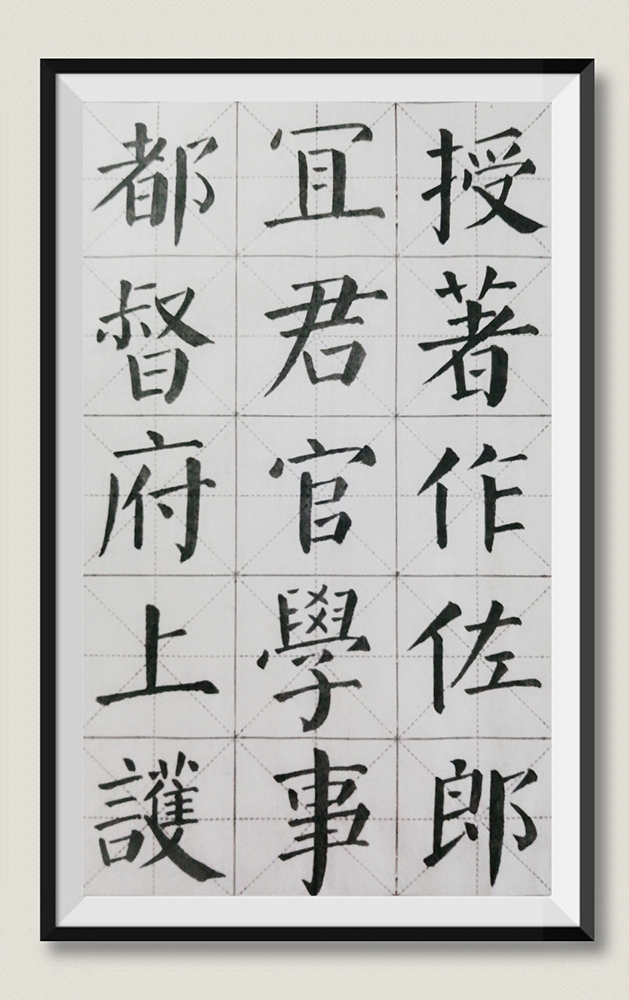 授著作佐郎
冝君官學事
都督府上護